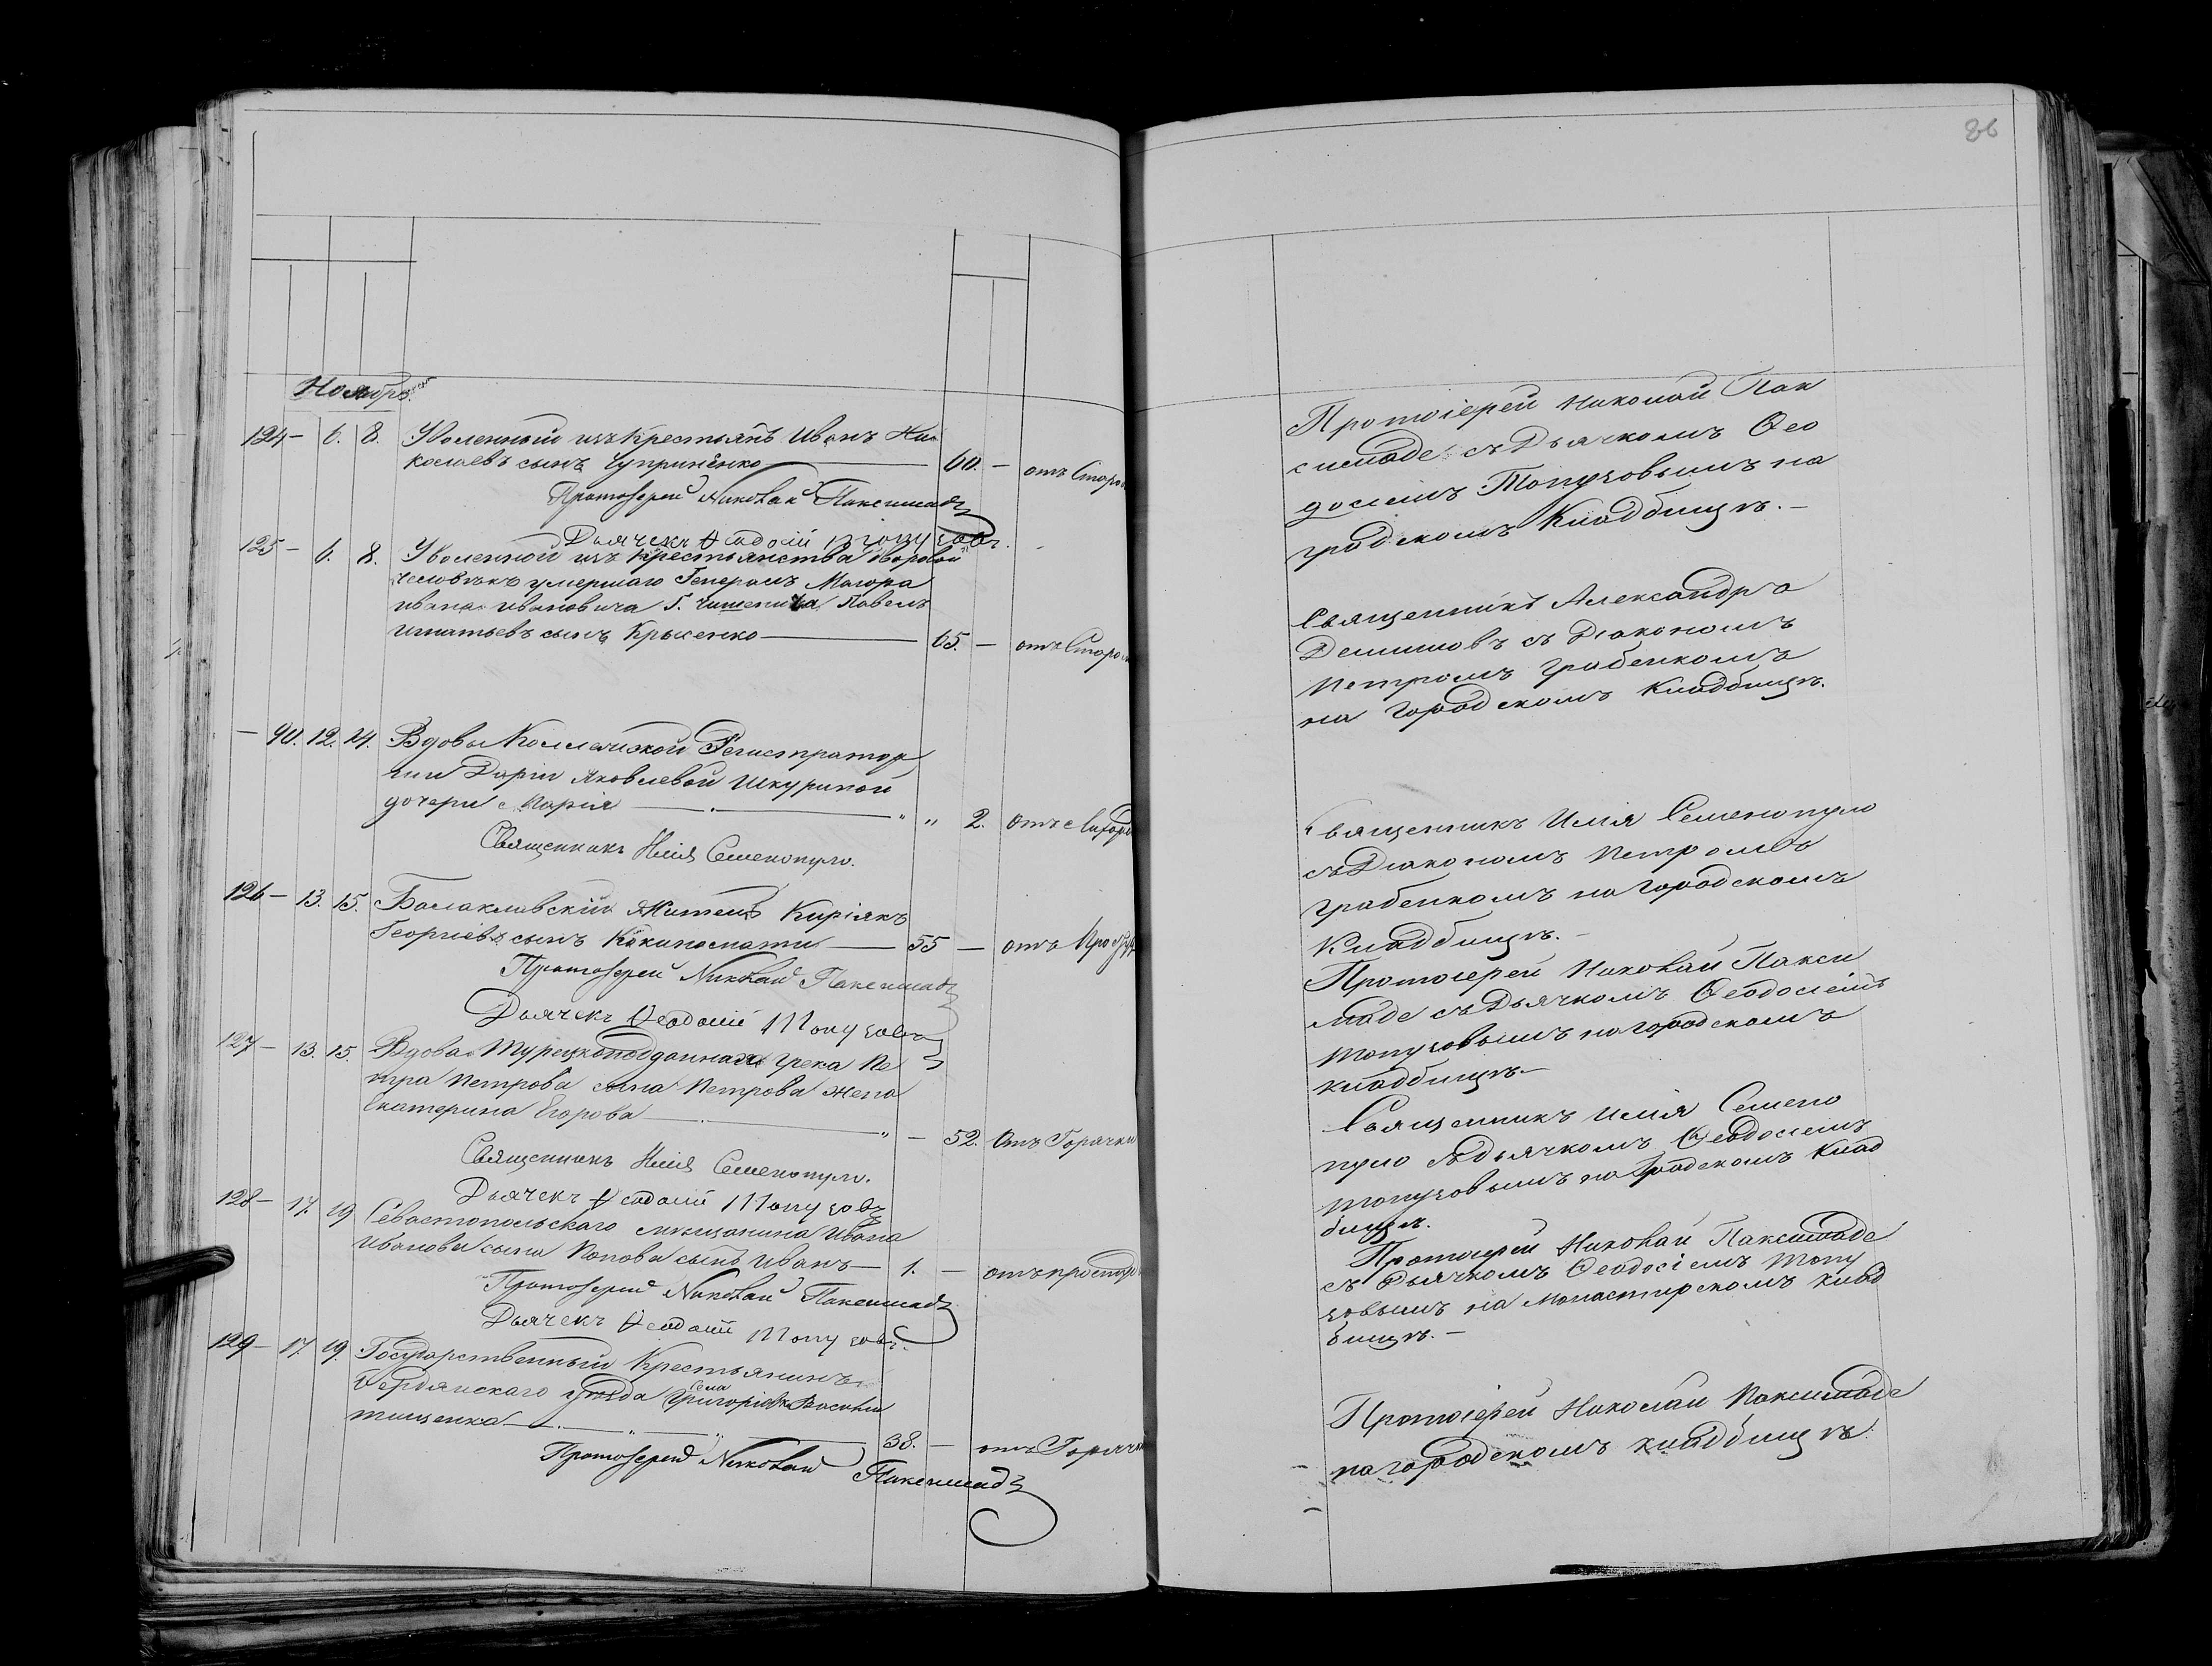 86
Ноябрь
124 — 6. 8. Уволенный изъ крестьянъ Иванъ Ни
колаевъ сынъ Чуприненко — 60. — отъ Старо
Протоіерей Николай Паксимадъ
Дьячекъ Ѳеодосій Топузовъ.
125 — 6. 8. Уволенной изъ крестьянства дворовой
человѣкъ умершаго Генералъ Маіора
Ивана Ивановича Г. Павелъ
Игнатьевъ сынъ Крысенко — 65. — отъ Старо
— 90. 12. 14. Вдовы Коллежской Регистратор
ши Дарьи Яковлевой Шкуриной
дочери Марія — " " 2. отъ
Священникъ Илія Семенопуло.
126 — 13. 15. Балаклавскій Житель Киріякъ
Георгіевъ сынъ — 55 — отъ Простуд
Протоіерей Николай Паксимадъ
Дьячекъ Ѳеодосій Топузовъ
127 — 13. 15. Вдова Турецкоподданнаго грека Пе
тра Петрова сына Петрова жена
Екатерина Егорова — " — 52. Отъ Горячки
Священникъ Илія Семенопуло.
Дьячекъ Ѳеодосій Топузовъ
128 — 17. 19 Севастопольскаго мѣщанина Ивана
Иванова сына Попова сынъ Иванъ — 1. — отъ простуд
Протоіерей Николай Паксимадъ
Дьячекъ Ѳеодосій Топузовъ.
129 — 17. 19. Государственный Крестьянинъ
Бердянскаго уѣзда села Григоріевки Василій
Тищенко — " — " — 38. — отъ Горячк
Протоіерей Николай Паксимадъ
Протоіерей Николай Пак
симаде съ Дьячкомъ Ѳео
досіемъ Топузовымъ на
градскомъ Кладбищѣ. —
Священникъ Александръ
Демяновъ съ Діакономъ
Петромъ Грабенкомъ
на Городскомъ Кладбищѣ.
Священникъ Илія Семенопуло
съ Діакономъ Петромъ
Грабенкомъ на Городскомъ
Кладбищѣ. —
Протоіерей Николай Пакси
маде съ Дьячкомъ Ѳеодосіемъ
Топузовымъ на городскомъ
кладбищѣ. —
Священникъ Илія Семено
пуло съ Дьячкомъ Ѳеодосіемъ
Топузовымъ на Градскомъ Клад
бищѣ.
Протоіерей Николай Паксимаде
съ Дьячкомъ Ѳеодосіемъ Топу
зовымъ на Монастирскомъ клад
бищѣ. —
Протоіерей Николай Паксимаде
на городскомъ кладбищѣ.